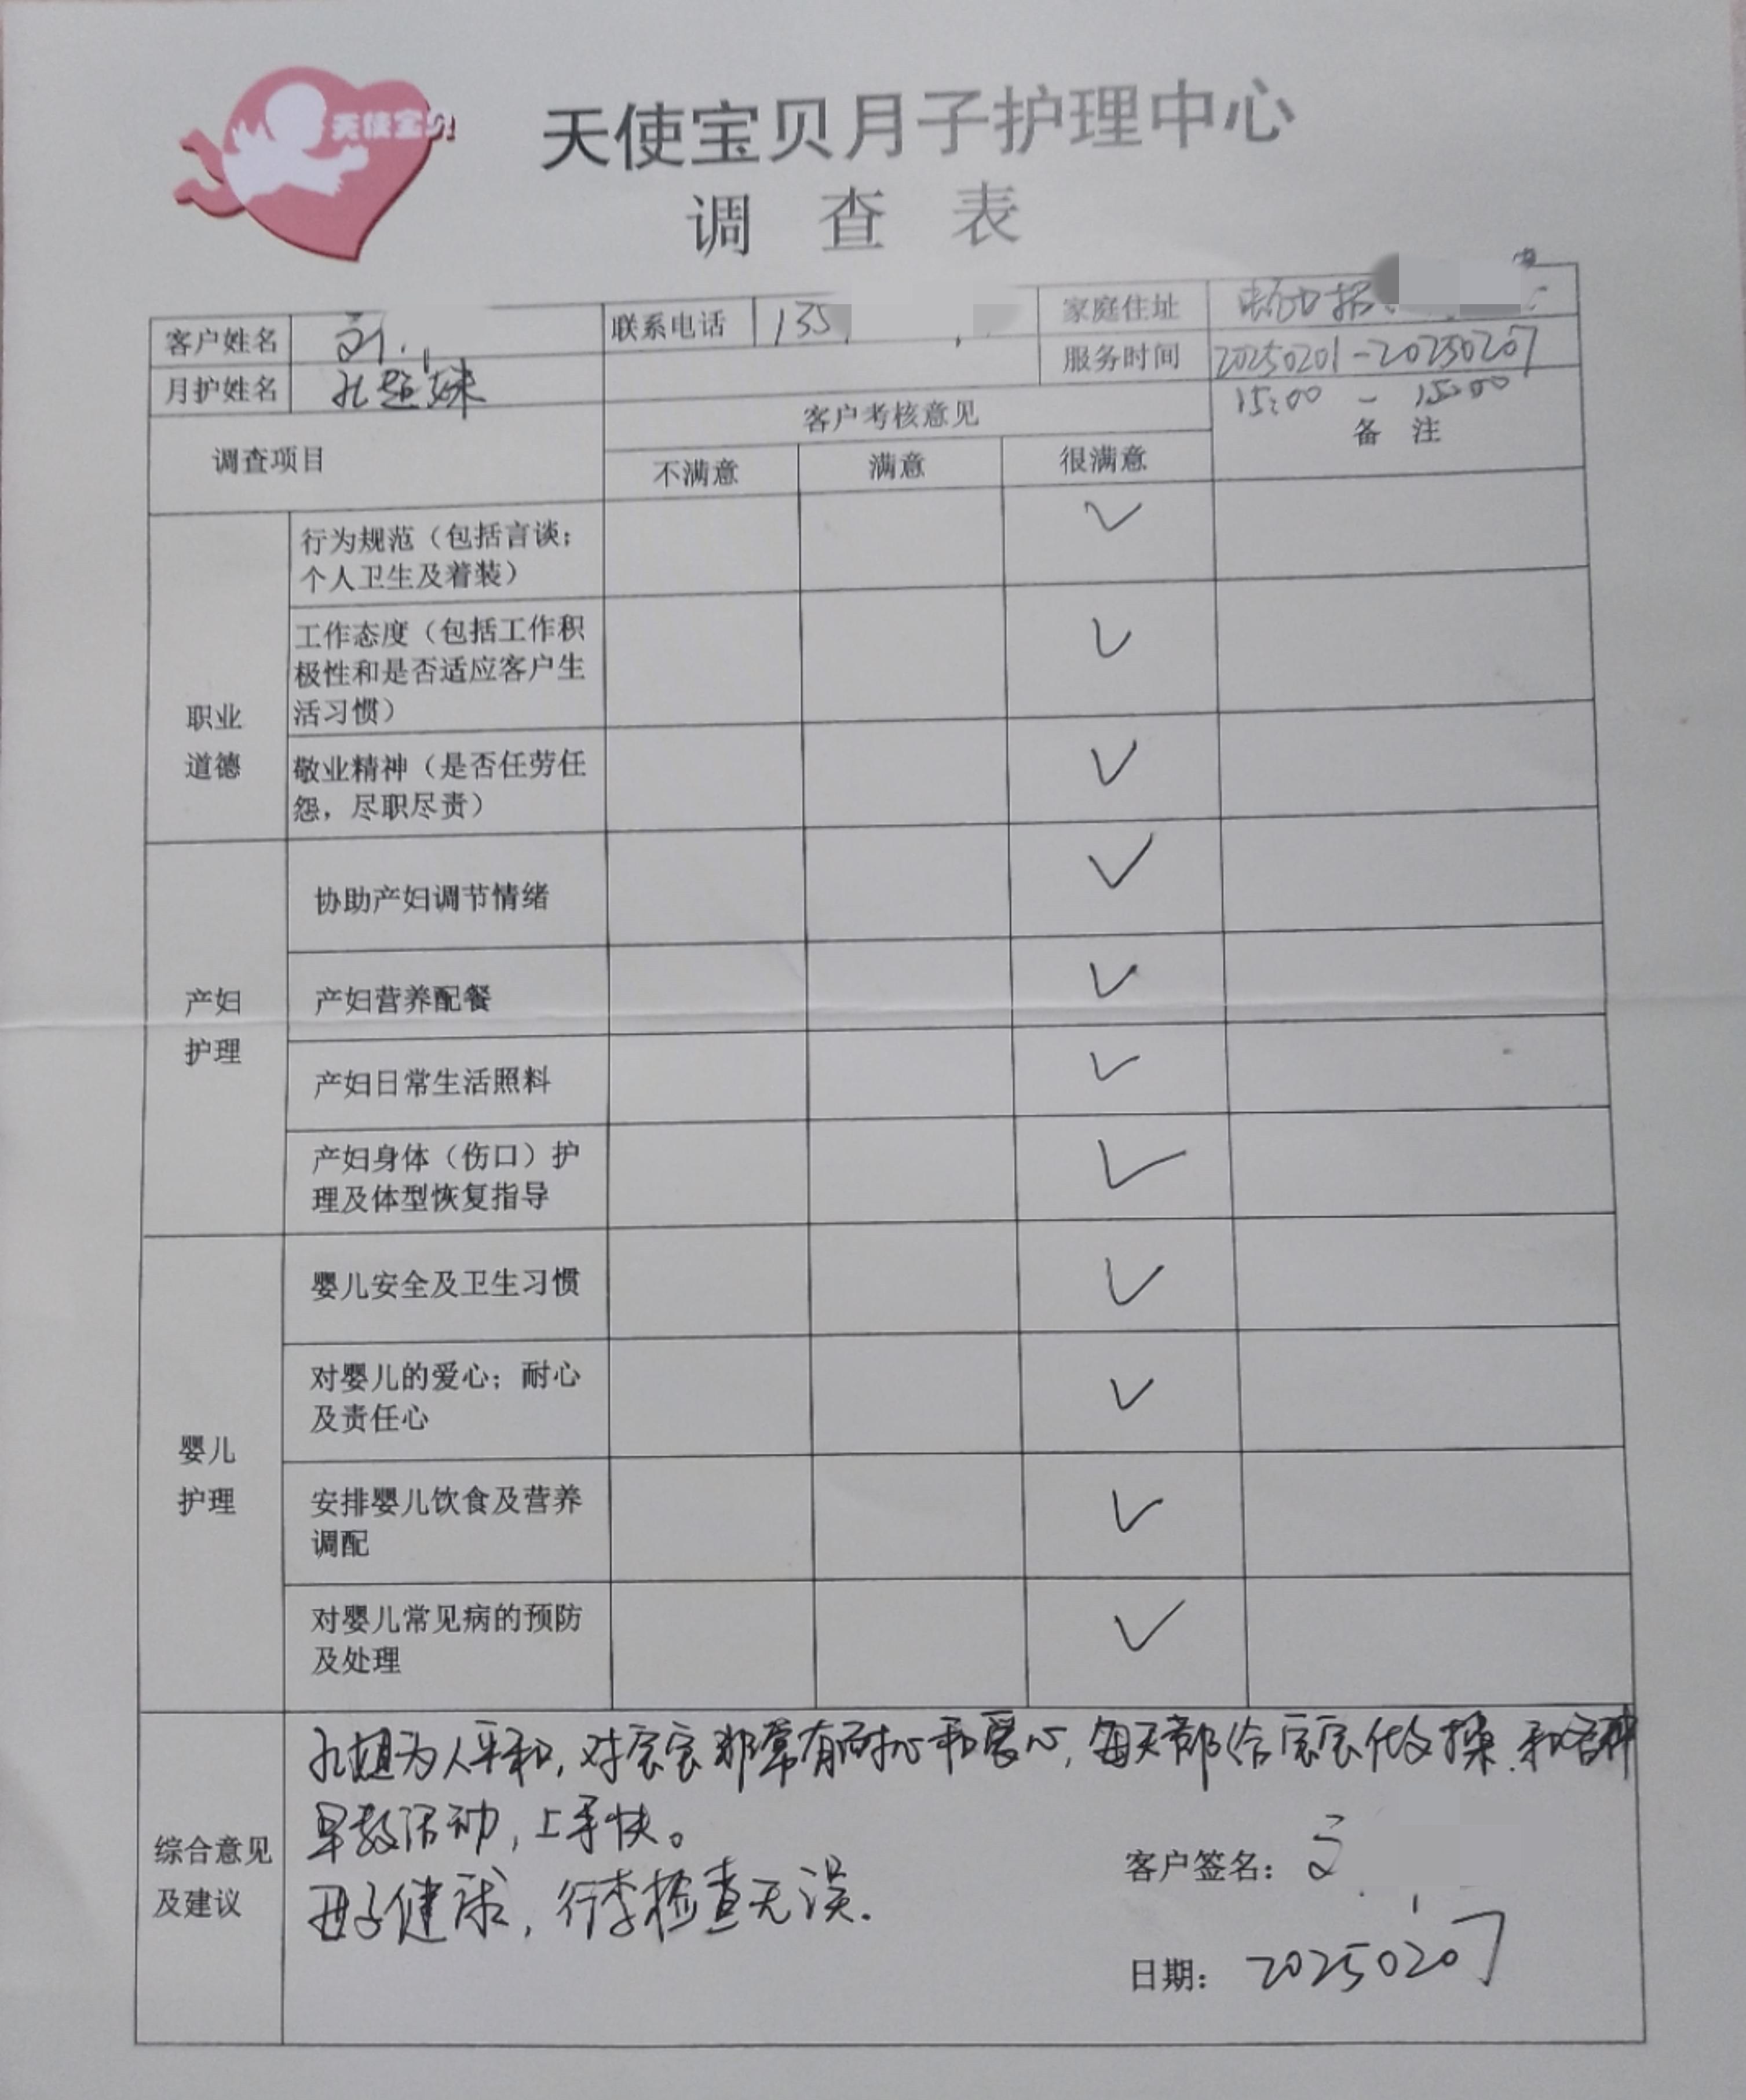 天使宝贝
天使宝贝月子护理中心
调 查 表
客户姓名 刘 联系电话 135 家庭住址
月护姓名 孔超妹 服务时间 20250201-20250207
15:00 - 15:00
调查项目 客户考核意见 备 注
不满意 满意 很满意
职业
道德
行为规范（包括言谈；
个人卫生及着装） ✓
工作态度（包括工作积
极性和是否适应客户生
活习惯） ✓
敬业精神（是否任劳任
怨，尽职尽责） ✓
产妇
护理
协助产妇调节情绪 ✓
产妇营养配餐 ✓
产妇日常生活照料 ✓
产妇身体（伤口）护
理及体型恢复指导 ✓
婴儿
护理
婴儿安全及卫生习惯 ✓
对婴儿的爱心；耐心
及责任心 ✓
安排婴儿饮食及营养
调配 ✓
对婴儿常见病的预防
及处理 ✓
综合意见
及建议
孔姐为人平和，对宝宝非常有耐心和爱心，每天都给宝宝做操、和各种
早教活动，上手快。
母子健康，行李检查无误.
客户签名：
日期： 20250207